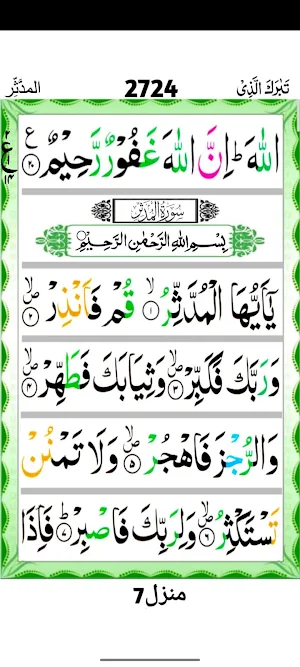 تَبٰرَكَ الَّذِیْ 2724 المدَّثِّر
اللّٰهَ ؕ اِنَّ اللّٰهَ غَفُوْرٌ رَّحِیْمٌ ۟۠ ﴿۲۰﴾ ع
سُوْرَةُ الْمُدَّثِّر
بِسْمِ اللّٰهِ الرَّحْمٰنِ الرَّحِیْمِ
یٰۤاَیُّهَا الْمُدَّثِّرُ ۙ﴿۱﴾ قُمْ فَاَنْذِرْ ۪ۙ﴿۲﴾
وَرَبَّكَ فَكَبِّرْ ۪ۙ﴿۳﴾ وَثِیَابَكَ فَطَهِّرْ ۪ۙ﴿۴﴾
وَالرُّجْزَ فَاهْجُرْ ۪ۙ﴿۵﴾ وَلَا تَمْنُنْ
تَسْتَكْثِرُ ۪ۙ﴿۶﴾ وَلِرَبِّكَ فَاصْبِرْ ؕ﴿۷﴾ فَاِذَا
منزل7